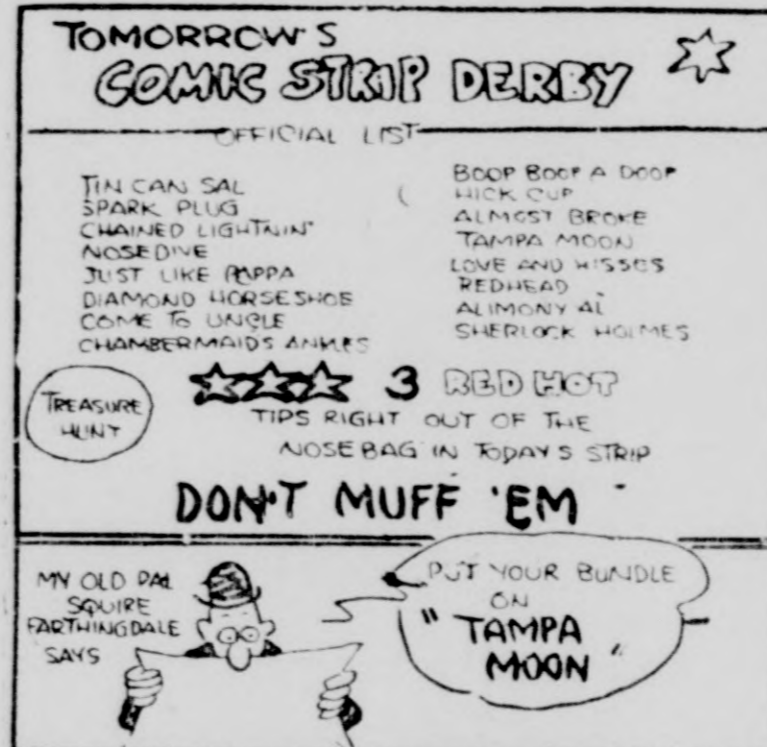 TOMORROW'S
COMIC STRIP DERBY
OFFICIAL LIST
TIN CAN SAL
SPARK PLUG
CHAINED LIGHTNIN'
NOSEDIVE
JUST LIKE PAPPA
DIAMOND HORSESHOE
COME TO UNCLE
CHAMBERMAIDS ANKLES
BOOP BOOP A DOOP
HICK CUP
ALMOST BROKE
TAMPA MOON
LOVE AND KISSES
REDHEAD
ALIMONY AL
SHERLOCK HOLMES
TREASURE
HUNT
3 RED HOT
TIPS RIGHT OUT OF THE
NOSEBAG IN TODAY'S STRIP
DON'T MUFF 'EM
MY OLD PAL
SQUIRE
FARTHINGDALE
SAYS
PUT YOUR BUNDLE
ON
"TAMPA
MOON"